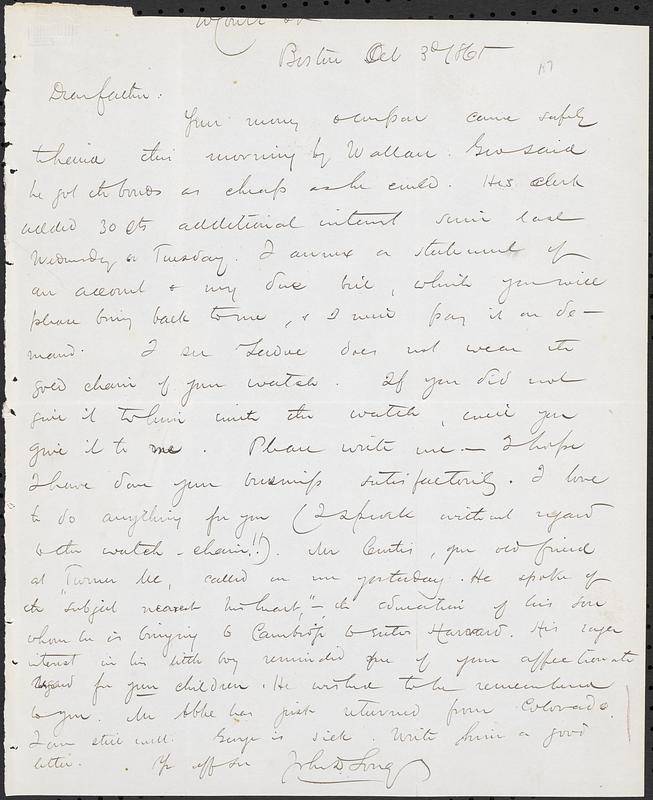 Court St
Boston Oct 3d 1865
Dear father.
Your money came safely
to hand this morning by Wallace. Geo said
he got the bonds as cheap as he could. His clerk
added 30 cts additional interest since last
Wednesday or Tuesday. I annex a statement of
an account & my due bill, which you will
please bring back to me, & I will pay it on de-
mand. I see Zadoc does not wear the
gold chain of your watch. If you did not
give it to him with the watch, will you
give it to me. Please write me. — I hope
I have done your business satisfactorily. I love
to do anything for you (I speak without regard
to the watch-chain!!). Mr Curtis, your old friend
at Turner Me, called on me yesterday. He spoke of
the "subject nearest his heart," — the education of his son
whom he is bringing to Cambridge to enter Harvard. His eager
interest in his little boy reminded me of your affectionate
regard for your children. He wished to be remembered
to you. Mr Abbe has just returned from Colorado.
I am still well. George is sick. Write him a good
letter. Yr aff son John D. Long